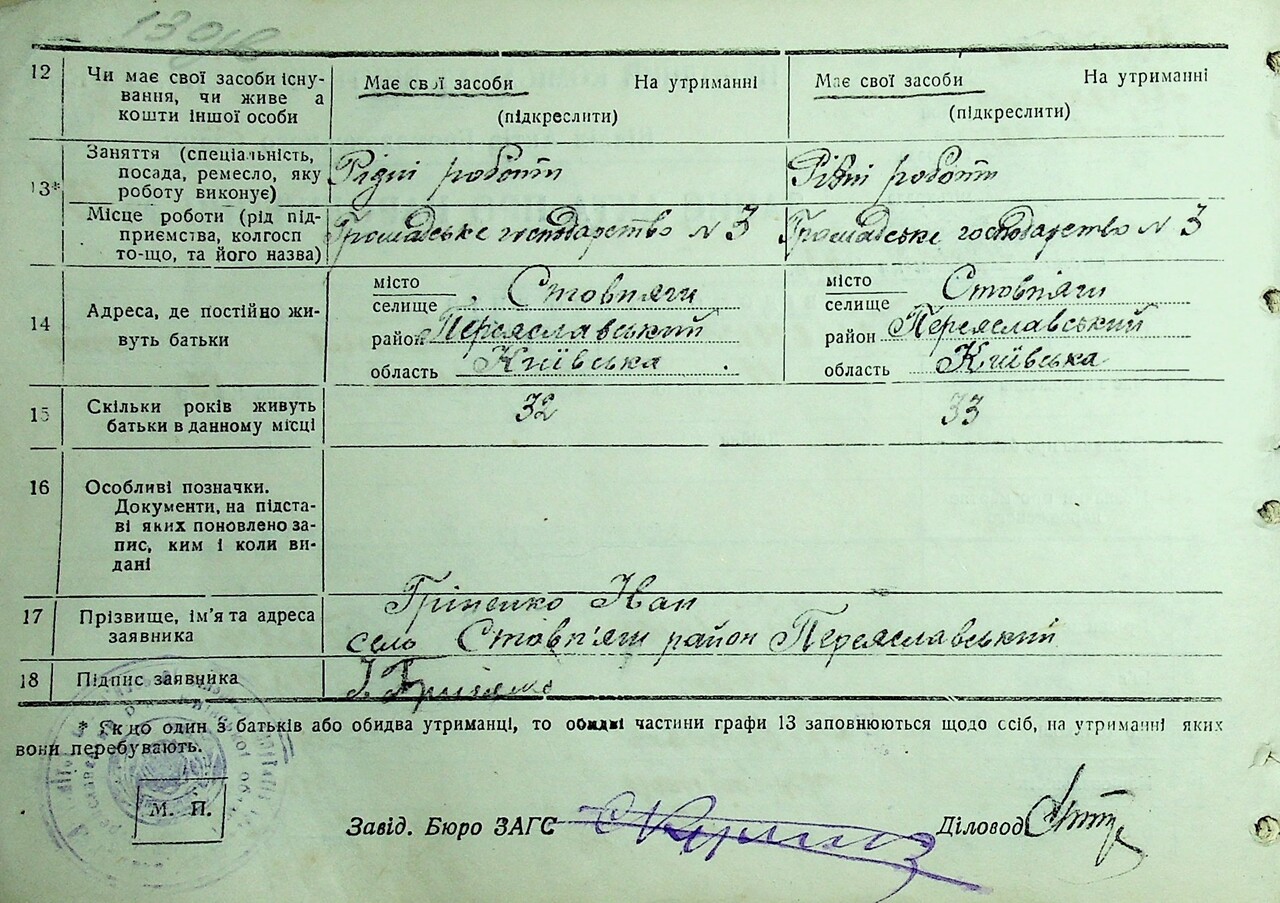 12 Чи має свої засоби існу-
вання, чи живе а
кошти іншої особи
Має свої засоби На утриманні
(підкреслити)
Має свої засоби На утриманні
(підкреслити)
13* Заняття (спеціальність,
посада, ремесло, яку
роботу виконує)
Рідні роботи
Рівні роботи
Місце роботи (рід під-
приємства, колгосп
то-що, та його назва)
Громадське господарство № 3
Громадське господарство № 3
14 Адреса, де постійно жи-
вуть батьки
місто
селище Стовп'яги
район Переяславський
область Київська
місто
селище Стовп'яги
район Переяславський
область Київська
15 Скільки років живуть
батьки в данному місці
32
33
16 Особливі позначки.
Документи, на підста-
ві яких поновлено за-
пис, ким і коли ви-
дані
17 Прізвище, ім'я та адреса
заявника
Гриценко Іван
село Стовп'яги район Переяславський
18 Підпис заявника
І. Гриценко
* Якщо один з батьків або обидва утриманці, то обидві частини графи 13 заповнюються щодо осіб, на утриманні яких
вони перебувають.
М. П.
Завід. Бюро ЗАГС
Діловод